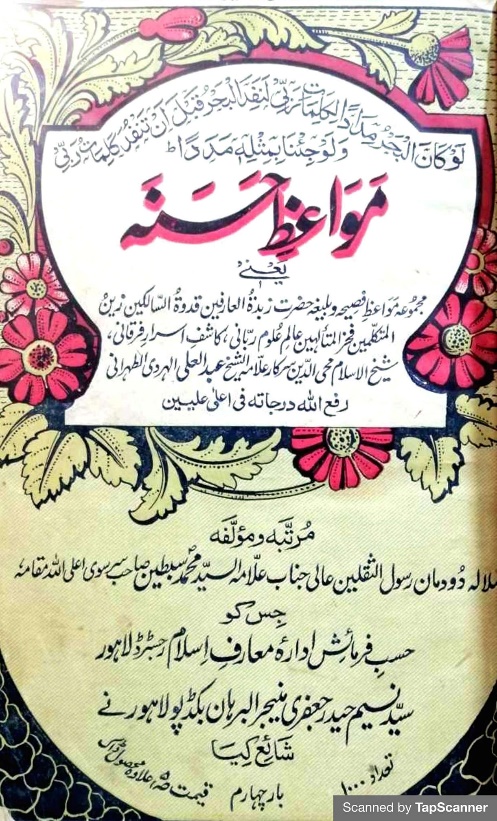 لَوْ كَانَ الْبَحْرُ مِدَادًا لِّكَلِمَاتِ رَبِّي لَنَفِدَ الْبَحْرُ قَبْلَ أَنْ تَنْفَدَ كَلِمَاتُ رَبِّي
وَلَوْ جِئْنَا بِمِثْلِهِ مَدَدًا ط
مَوَاعِظِ حَسَنَہ
یعنے
مجموعہ مواعظ فصیحہ و بلیغہ حضرت زبدۃ العارفین قدوۃ السالکین زین
المتکلمین فخر المتالہین عالم علوم ربانی، کاشف اسرار فرقانی،
شیخ الاسلام محی الدین سرکار علامہ الشیخ عبد العلی الہروی الطہرانی
رفع اللہ درجاتہ فی اعلیٰ علیین
مرتبہ و مؤلفہ
سلالہ دودمان رسول الثقلین عالی جناب علامہ السید محمد سبطین صاحب سرسوی اعلی اللہ مقامہ
جس کو
حسب فرمائش ادارہ معارف اسلام رجسٹرڈ لاہور
سید نسیم حیدر جعفری منیجر البرہان بکڈپو لاہور نے
شائع کیا
تعداد ۱۰۰۰
بار چہارم
قیمت علاوہ محصول ڈاک
Scanned by TapScanner